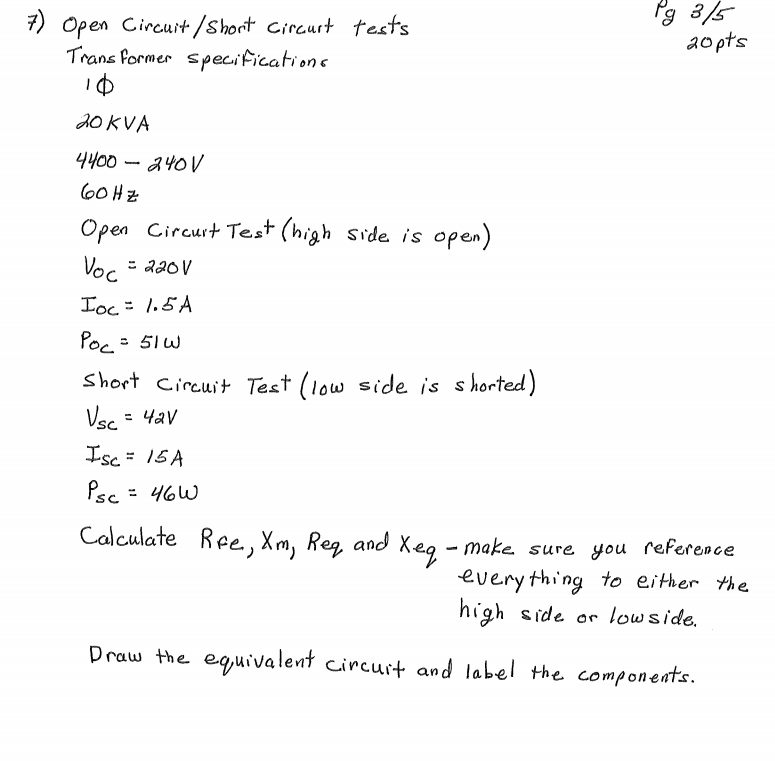 7) Open Circuit/Short Circuit tests
Pg 3/5
20pts
Transformer specifications
1ϕ
20KVA
4400 – 240V
60Hz
Open Circuit Test (high side is open)
Voc = 220V
Ioc = 1.5A
Poc = 51W
Short Circuit Test (low side is shorted)
Vsc = 42V
Isc = 15A
Psc = 46W
Calculate Rfe, Xm, Req and Xeq - make sure you reference
everything to either the
high side or lowside.
Draw the equivalent circuit and label the components.